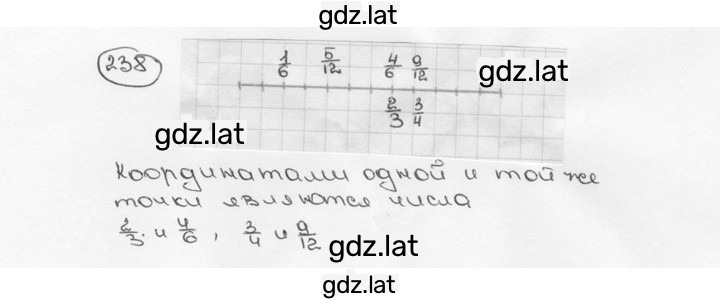 gdz.lat
238
1/6 5/12 4/6 9/12
gdz.lat
2/3 3/4
gdz.lat
Координатами одной и той же
точки являются числа
2/3 и 4/6, 3/4 и 9/12
gdz.lat
gdz.lat